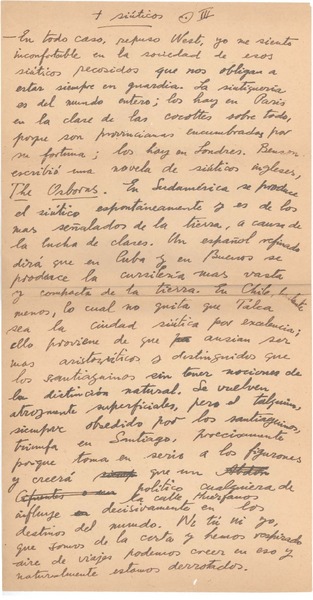 + siúticos III
— En todo caso, repuso West, yo me siento
inconfortable en la sociedad de esos
siúticos recosidos que nos obligan a
estar siempre en guardia. La siutiquería
es del mundo entero; los hay en París
en la clase de las cocottes sobre todo,
porque son provincianas encumbradas por
su fortuna; los hay en Londres. Benson
escribió una novela de siúticos ingleses,
The Osbornes. En Sudamérica se produce
el siútico espontáneamente y es de los
mas señalados de la tierra, a causa de
la lucha de clases. Un español refinado
dirá que en Cuba y en Buenos se
produce la cursilería mas vasta
y compacta de la tierra. En Chile,
menos, lo cual no quita que Talca
sea la ciudad siútica por excelencia;
ello proviene de que ansian ser
mas aristocráticos y distinguidos que
los santiaguinos sin tener nociones de
la distinción natural. Se vuelven
atrozmente superficiales, pero el talquino,
siempre obsedido por los santiaguinos,
triunfa en Santiago, precisamente
porque toma en serio a los figurones
y creerá que un
político cualquiera de
la calle Huérfanos
influye decisivamente en los
destinos del mundo. Ni tú ni yo,
que somos de la casta y hemos respirado
aire de viajes podemos creer en eso y
naturalmente estamos derrotados.